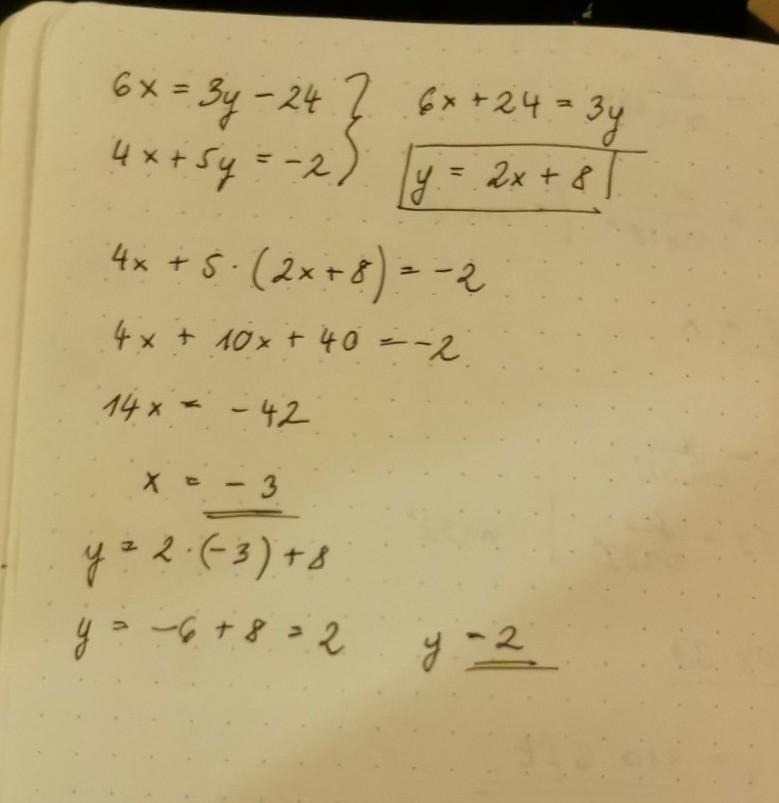 6x = 3y - 24 } 6x + 24 = 3y
4x + 5y = -2 } y = 2x + 8
4x + 5 · (2x + 8) = -2
4x + 10x + 40 = -2
14x = -42
x = -3
y = 2 · (-3) + 8
y = -6 + 8 = 2 y = 2